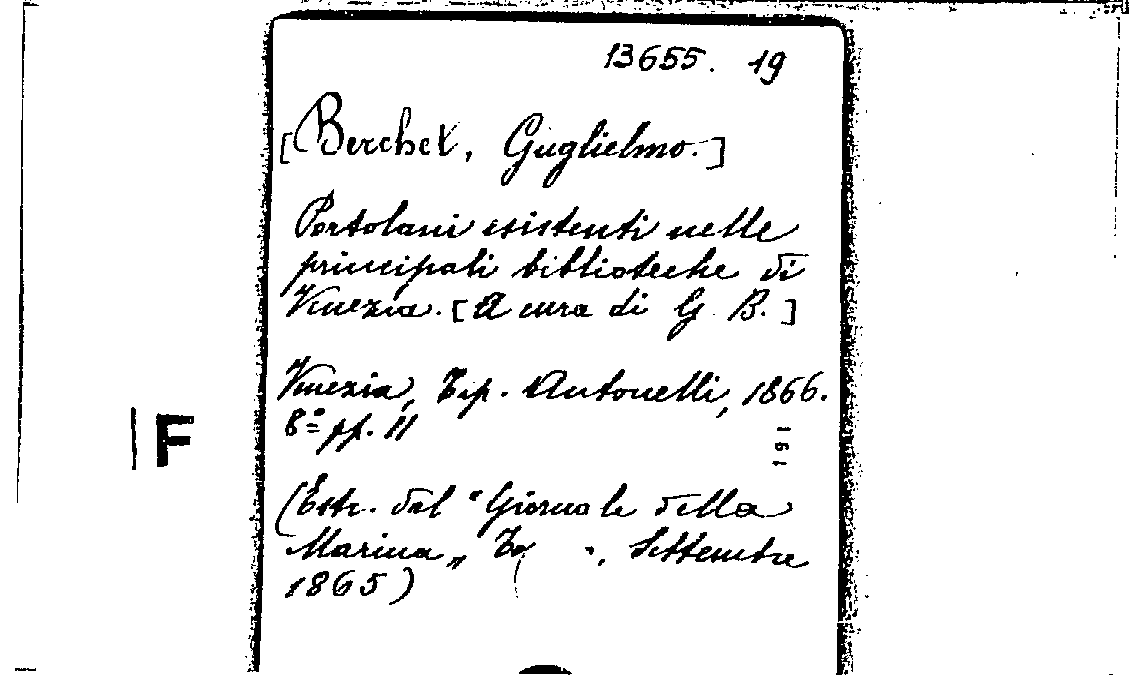 13655. 19
[Berchet, Guglielmo.]
Portolani esistenti nelle
principali biblioteche di
Venezia. [A cura di G. B.]
Venezia, Tip. Antonelli, 1866.
8º pp. 11
191
F
(Estr. dal "Giornale della
Marina,, Settembre
1865)